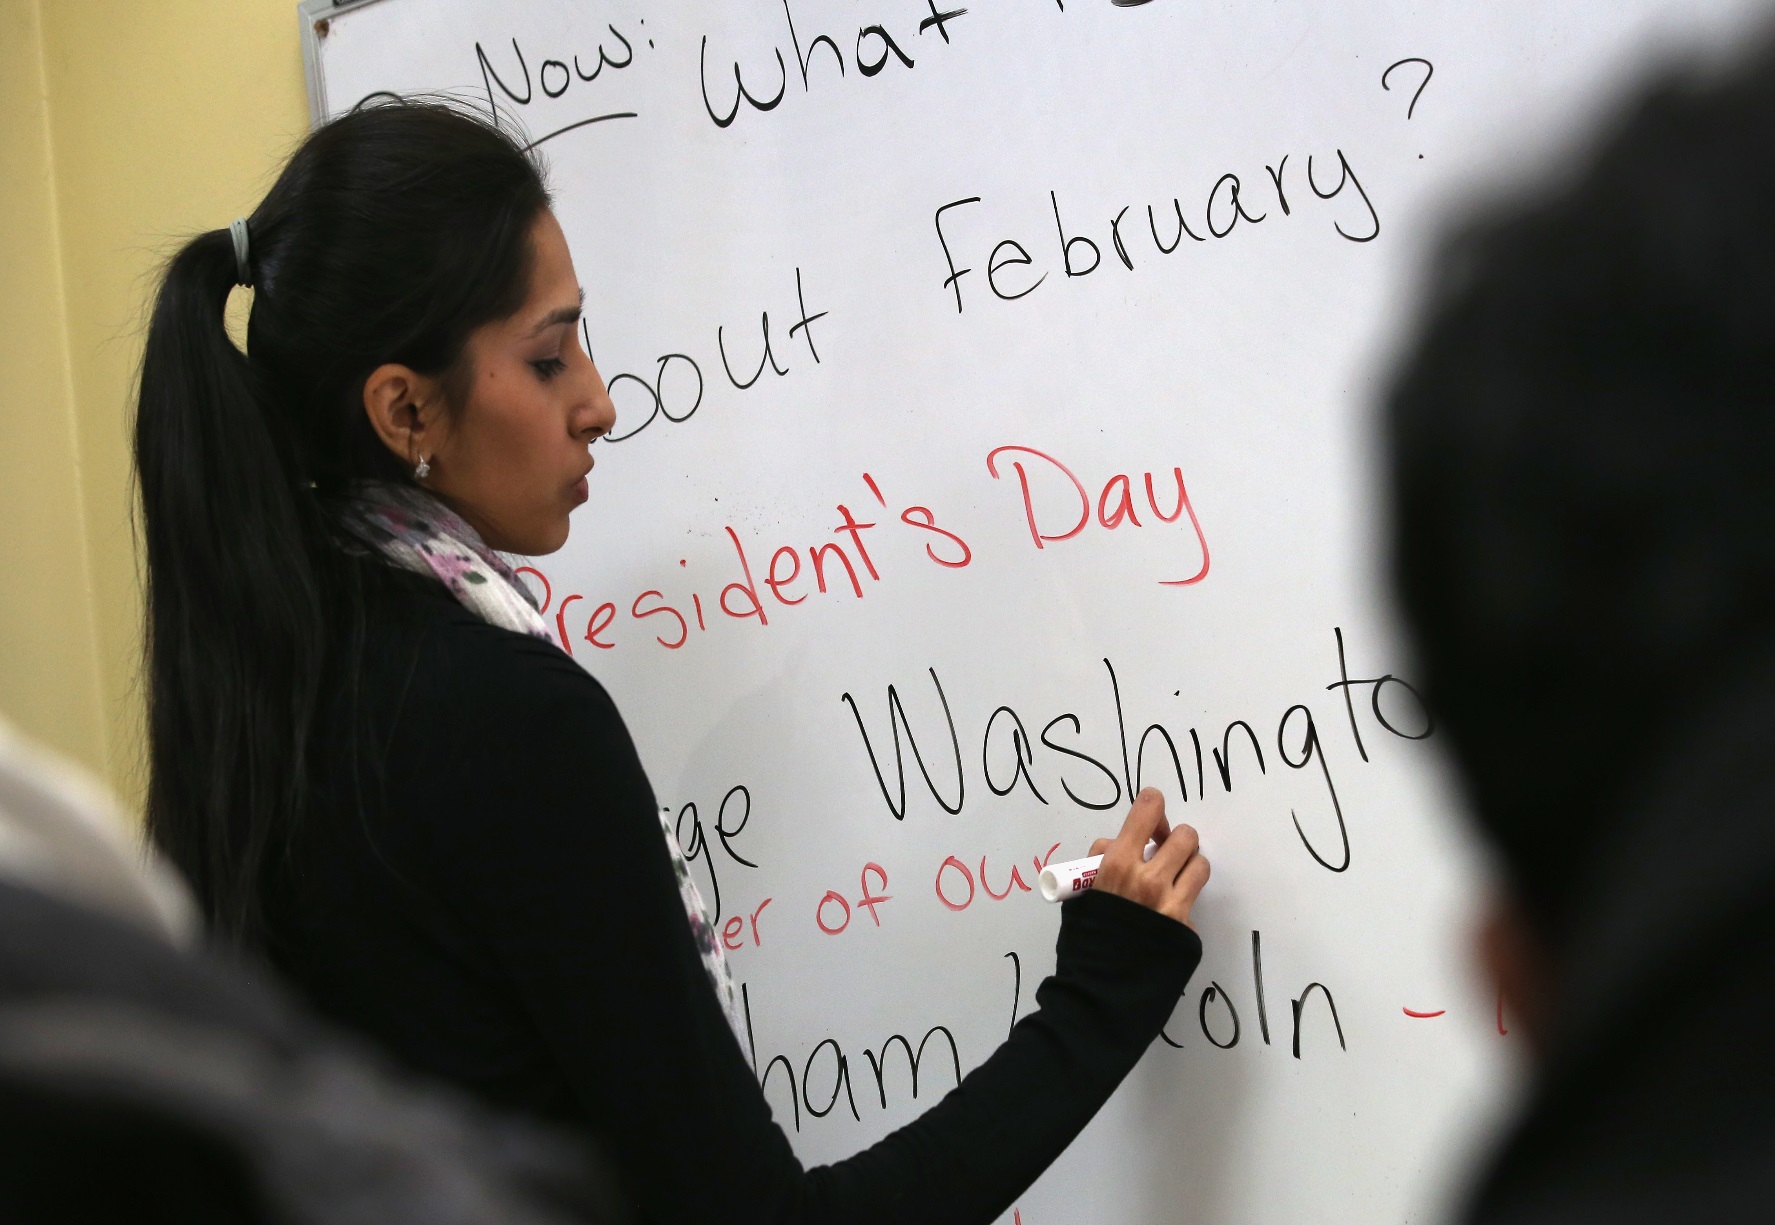 Now: What
bout February?
President's Day
ge Washingto
er of our
ham coln -